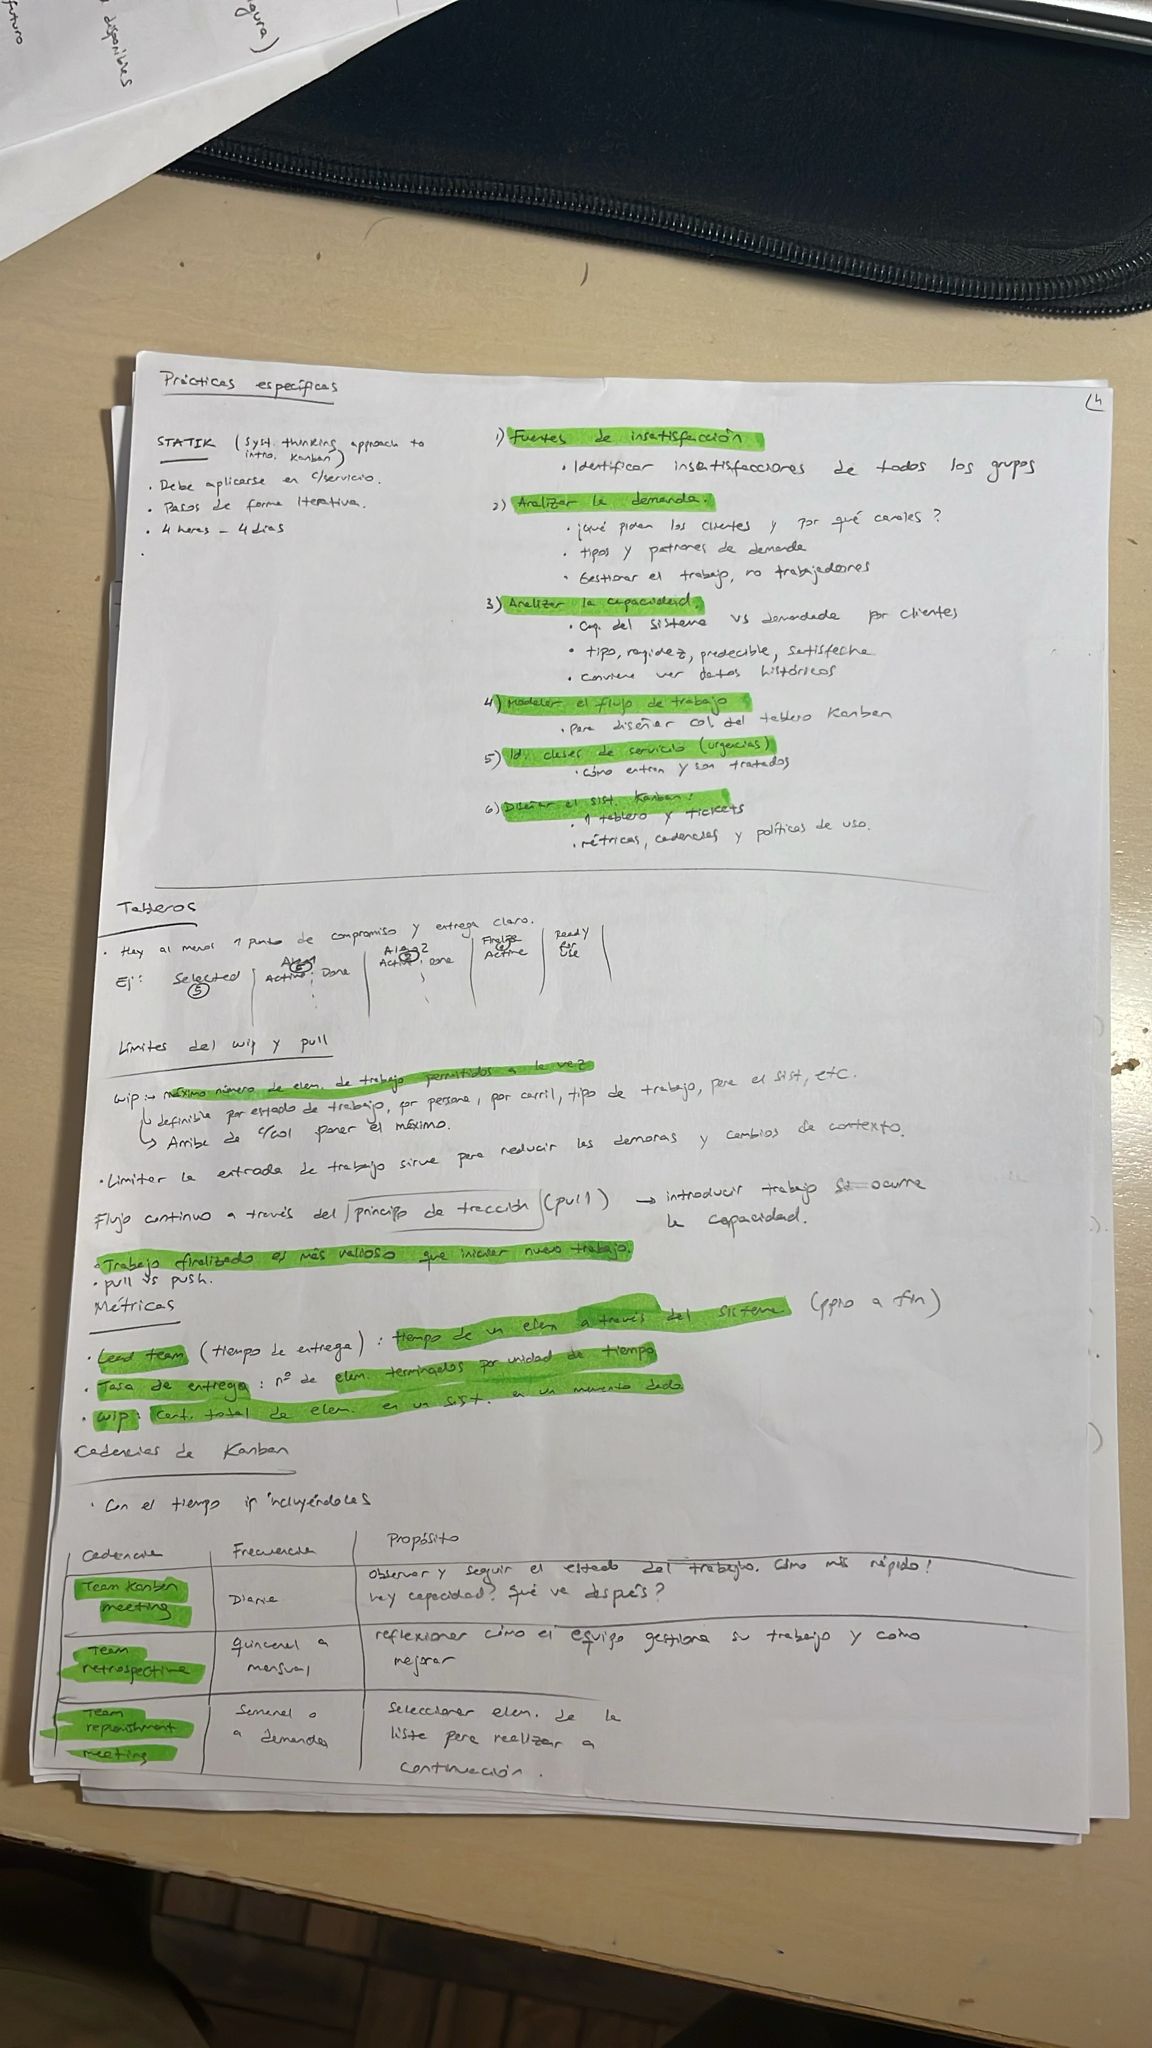 futuro
disponibles
igura)
4
Prácticas específicas
STATIK (Syst. thinking approach to
intro. Kanban)
· Debe aplicarse en c/servicio.
· Pasos de forma iterativa.
· 4 horas - 4 días
1) Fuentes de insatisfacción
· Identificar insatisfacciones de todos los grupos
2) Analizar la demanda.
· ¡Qué piden los clientes y por qué canales?
· tipos y patrones de demanda
· Gestionar el trabajo, no trabajadores
3) Analizar la capacidad.
· Cap. del sistema vs demandada por clientes
· tipo, rapidez, predecible, satisfecha
· conviene ver datos históricos
4) Modelar el flujo de trabajo
· para diseñar col. del tablero Kanban
5) Id. clases de servicio (urgencias)
· cómo entran y son tratados
6) Diseñar el sist. Kanban:
· 1 tablero y tickets
· métricas, cadencias y políticas de uso.
Tableros
· Hay al menos 1 punto de compromiso y entrega claro.
Ej: Selected Active Done Active Done Active Ready for Use
5
Límites del wip y pull
wip: máximo número de elem. de trabajo permitidos a la vez
definible por estado de trabajo, por persona, por carril, tipo de trabajo, para el sist, etc.
Arriba de c/col poner el máximo.
· Limitar la entrada de trabajo sirve para reducir las demoras y cambios de contexto.
Flujo continuo a través del principio de tracción (pull) → introducir trabajo si ocurre
la capacidad.
· Trabajo finalizado es más valioso que iniciar nuevo trabajo.
· pull vs push.
Métricas
· Lead team (tiempo de entrega): tiempo de un elem a través del sistema (ppio a fin)
· Tasa de entrega: nº de elem. terminados por unidad de tiempo
· wip: cant. total de elem. en un sist. en un momento dado
Cadencias de Kanban
· Con el tiempo ir incluyéndolas
Cadencia Frecuencia Propósito
Team Kanban meeting Diaria Observar y seguir el estado del trabajo. Cómo más rápido?
hay capacidad? Qué va después?
Team retrospective quincenal a mensual reflexionar cómo el equipo gestiona su trabajo y como
mejorar
Team replenishment meeting Semanal o a demanda Seleccionar elem. de la
lista para realizar a
continuación.